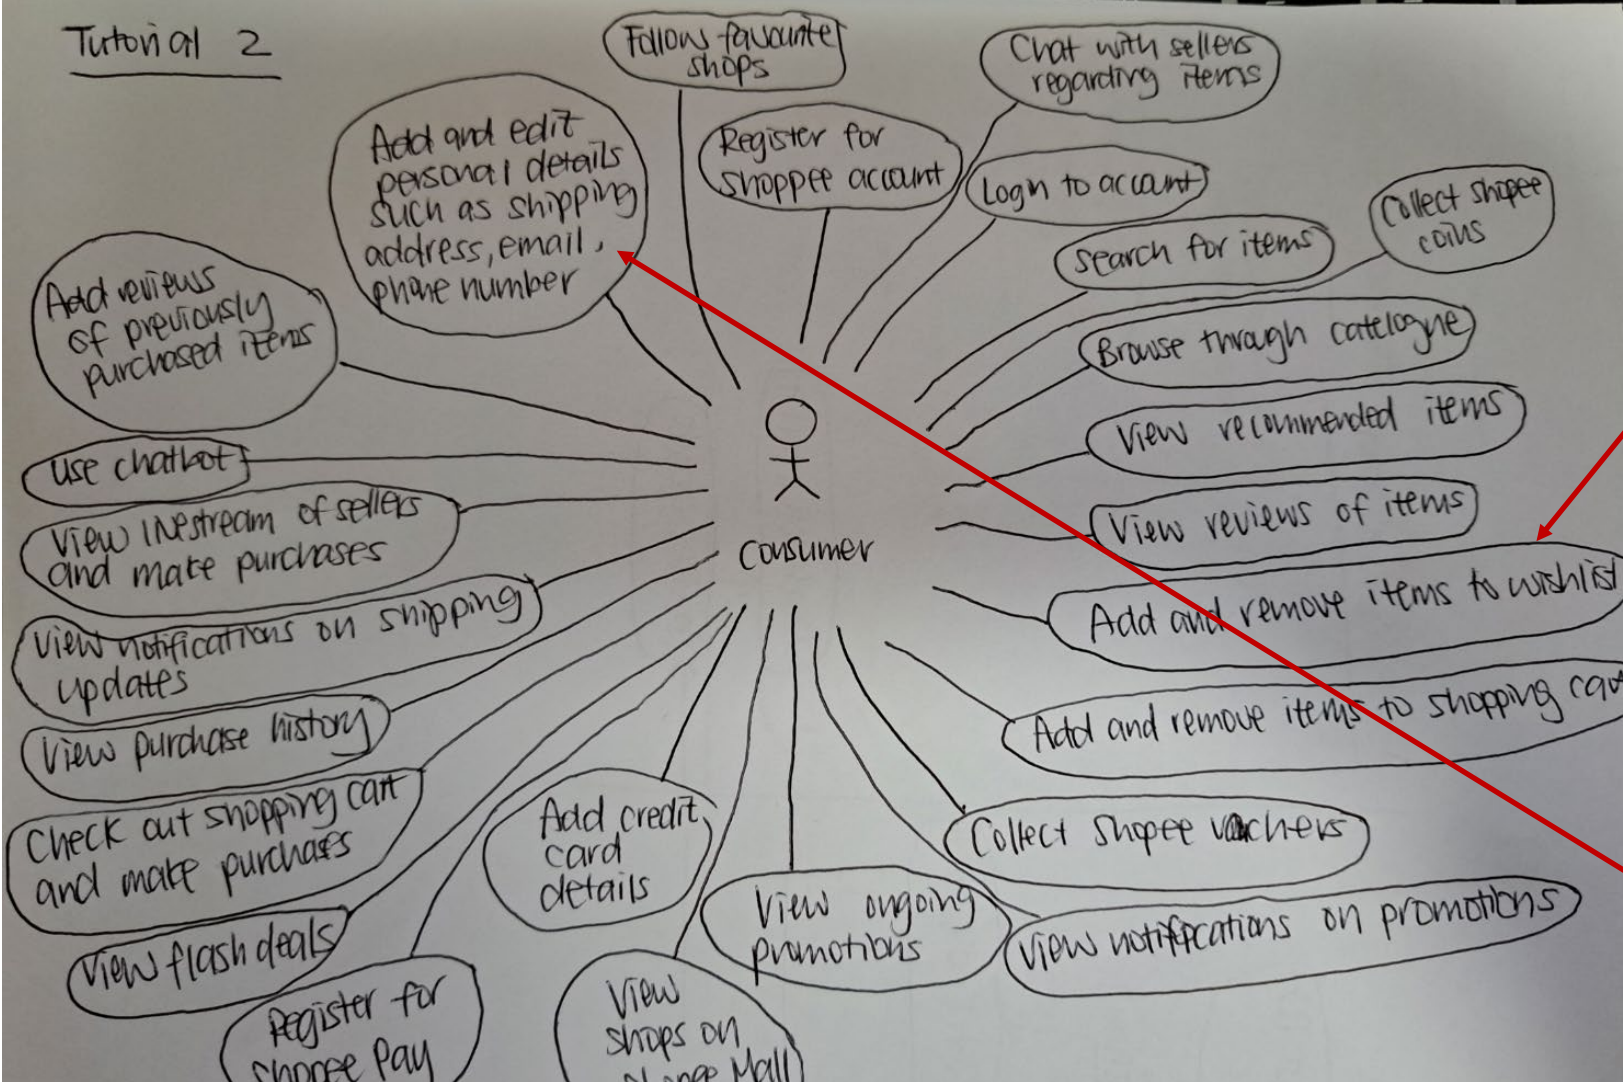 Tutorial 2
Follow favourite
shops
Chat with sellers
regarding items
Add and edit
personal details
such as shipping
address, email,
phone number
Register for
shoppee account
Login to account
Collect shopee
coins
Search for items
Add reviews
of previously
purchased items
Browse through catelogue
View recommended items
Use chatbot
View livestream of sellers
and make purchases
View reviews of items
Consumer
Add and remove items to wishlist
View notifications on shipping
updates
Add and remove items to shopping
View purchase history
Check out shopping cart
and make purchases
Add credit
card
details
Collect Shopee vouchers
View ongoing
promotions
View notifications on promotions
View flash deals
Register for
Shopee Pay
View
shops on
Mall